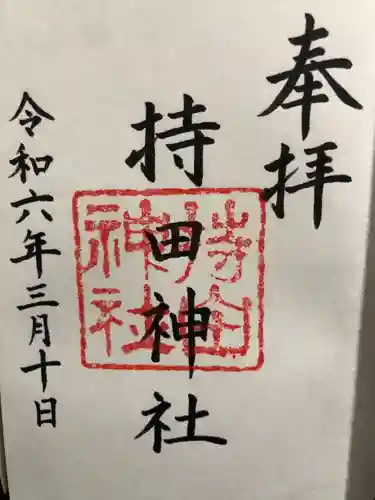 奉拝
持田神社
持田神社
令和六年三月十日